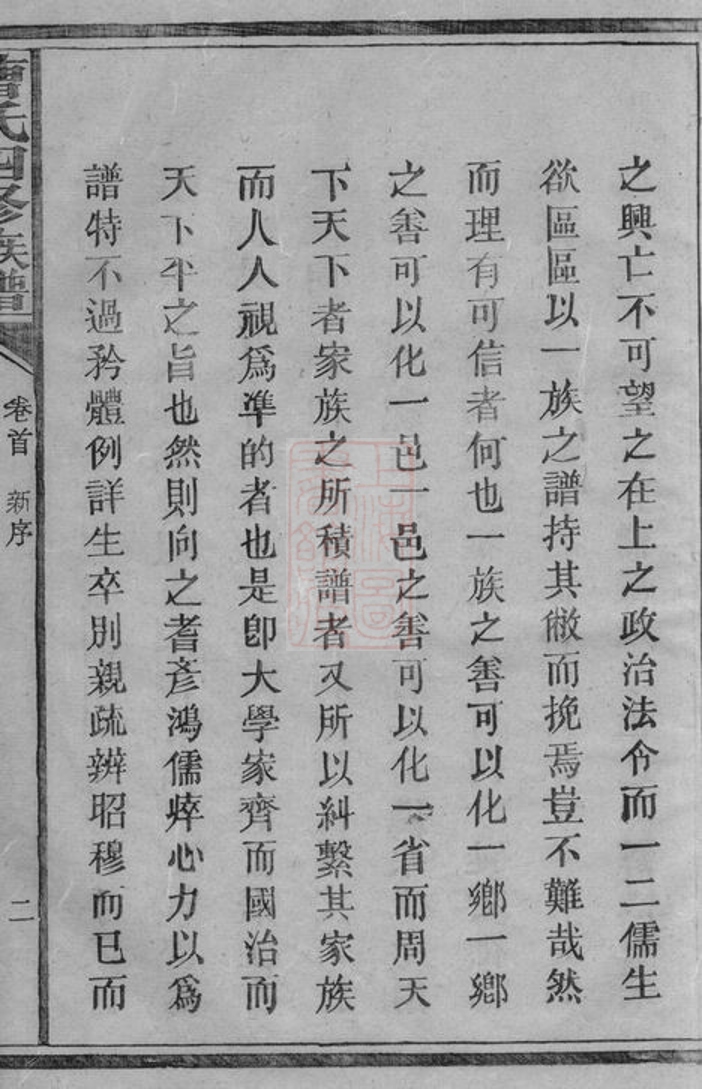 之興亡不可望之在上之政治法令而一二儒生
欲區區以一族之譜持其敝而挽焉豈不難哉然
而理有可信者何也一族之善可以化一鄉一鄉
之善可以化一邑一邑之善可以化一省而周天
下天下者家族之所積譜者又所以糾繫其家族
而人人視爲準的者也是卽大學家齊而國治而
天下平之旨也然則向之耆彥鴻儒瘁心力以爲
譜特不過矜體例詳生卒別親疏辨昭穆而已而
氏四修族譜
卷首 新序
二